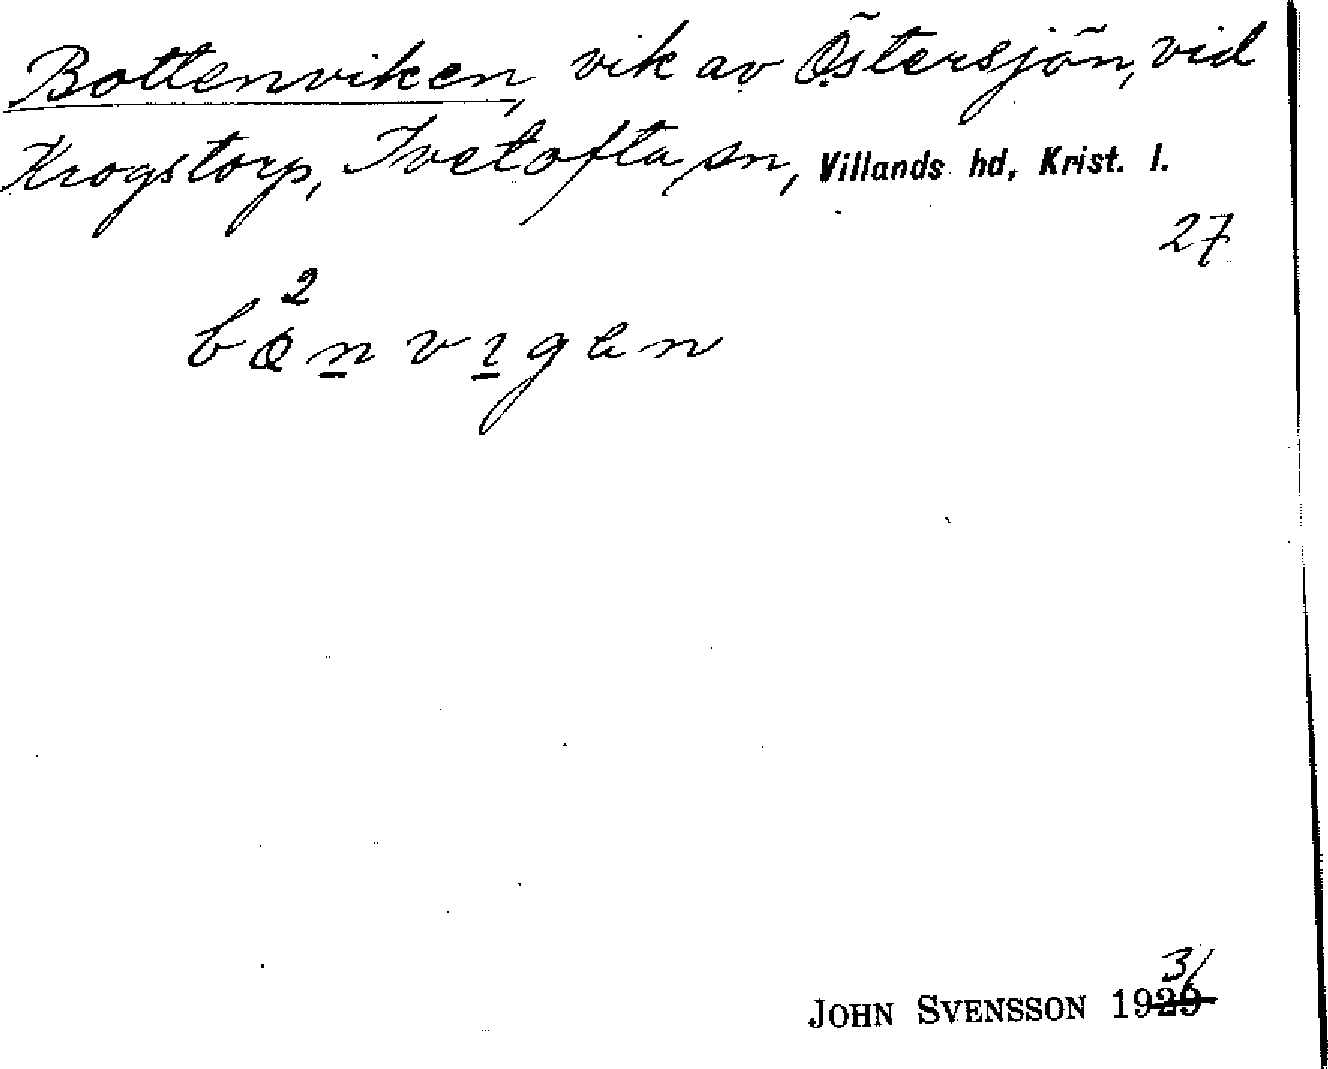 Bottenviken, vik av Östersjön, vid
Krogstorp, Ivetofta sn, Villands hd, Krist. l.
27
2
JOHN SVENSSON 1929 31